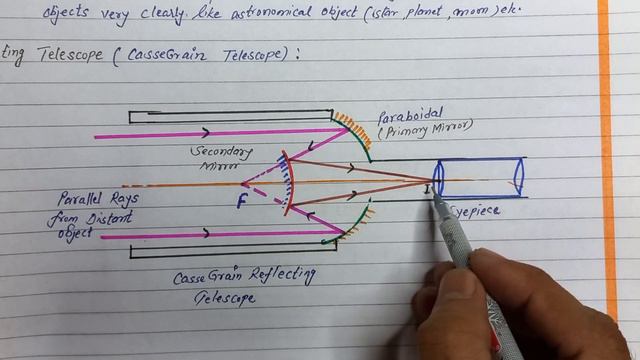 objects very clearly. like astronomical object (star planet, moon) etc.
ting Telescope (CasseGrain Telescope) :
Paraboidal
(Primary Mirror)
Secondary
Mirror
F
I
Parallel Rays
from Distant
object
Eyepiece
CasseGrain Reflecting
Telescope